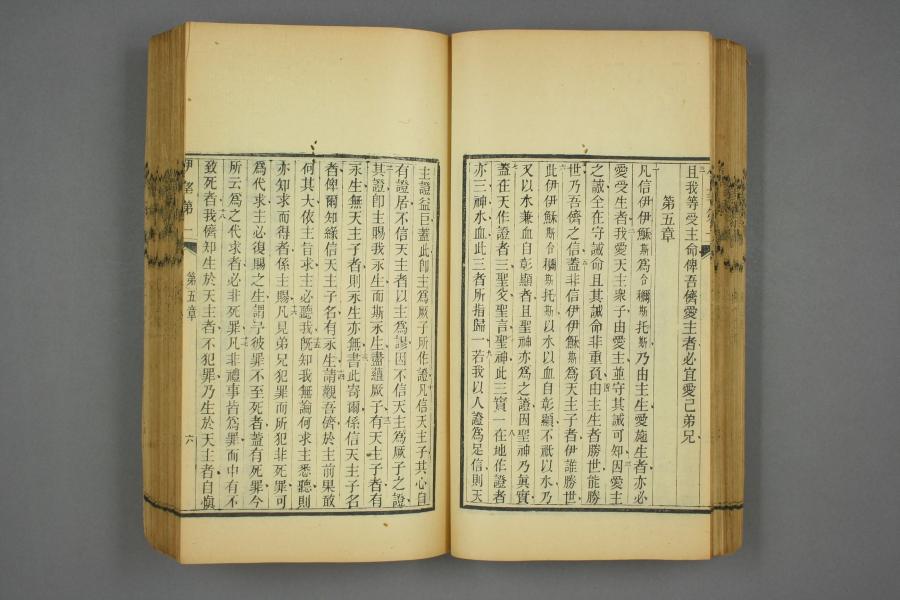 且我等受主命俾吾儕愛主者必宜愛己弟兄
第五章
凡信伊伊穌斯爲合穪斯托斯乃由主生愛施生者亦必
愛受生者我愛天主衆子由愛主並守其誡可知因愛主
之誠全在守誡命且其誡命非重負由主生者勝世能勝
世乃吾儕之信蓋非信伊伊穌斯爲天主子者伊誰勝世
此伊伊穌斯合穪斯托斯以水以血自彰顯不祇以水乃
又以水兼血自彰顯者且聖神亦爲之證因聖神乃眞實
蓋在天作證者三聖父聖言聖神此三寔一在地作證者
亦三神水血此三者所指歸一若我以人證爲足信則天
主證益巨蓋此卽主爲厥子所作證凡信天主子其心自
有證居不信天主者以主爲謬因不信天主爲厥子之證
其證卽主賜我永生而斯永生盡蘊厥子有天主子者有
永生無天主子者則永生亦無書此寄爾係信天主子名
者俾爾知緣信天主子名有永生請觀吾儕於主前果敢
何其大依主旨求主必聽我旣知我無論何求主悉聽則
亦知求而得者係主賜凡見弟兄犯罪而所犯非死罪可
爲代求主必復賜之生謂予彼罪不至死者蓋有死罪今
所云爲之代求者必非死罪凡非禮事皆爲罪而中有不
致死者我儕知生於天主者不犯罪乃生於天主者自愼
第一
第五章
六